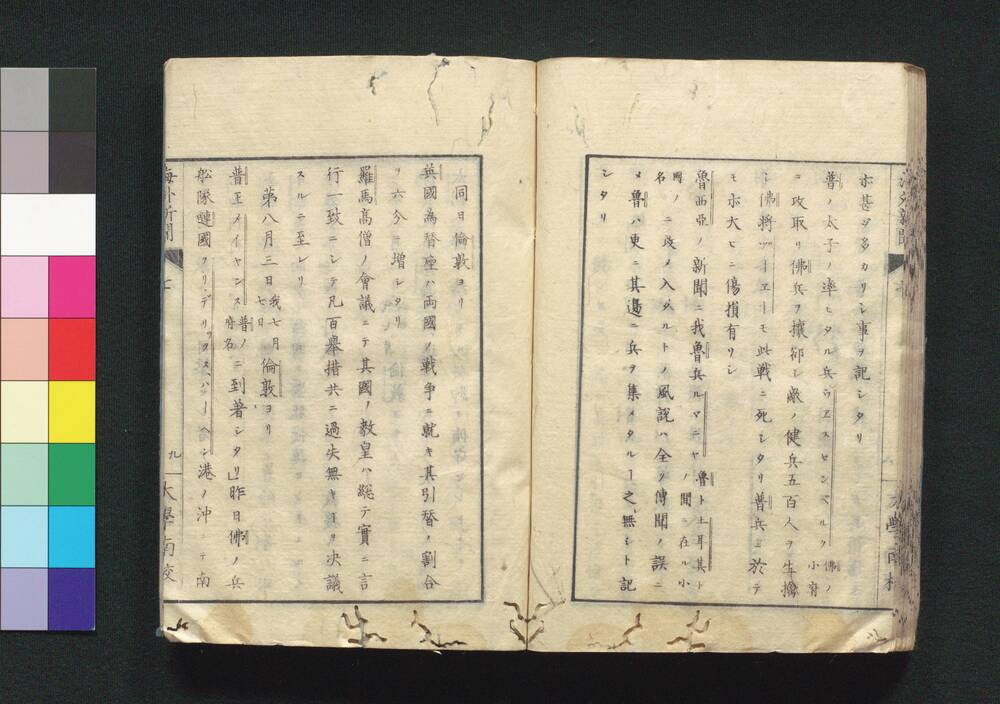 亦甚ダ多カリシ事ヲ記シタリ
普ノ太子ノ率ヒタル兵ウエスセンベルク佛ノ小府
ニ攻取リ佛兵ヲ攘卻シ敵ノ健兵五百人ヲ生擒
シ佛將ヅーエーモ此戰ニ死シタリ普兵ニ於テ
モ亦大ヒニ傷損有リシ
魯西亞ノ新聞ニ我魯兵ルマニヤ魯ト土耳其トノ間ニ在ル小國ノ名
ニ攻メ入タルトノ風説ハ全ク傳聞ノ誤ニ
メ魯ハ更ニ其邊ニ兵ヲ集メタルヿ之無シト記
シタリ
同日倫敦ヨリ
英國為替座ハ兩國ノ戰爭ニ就キ其引替ノ割合
ヲ六分ニ増シタリ
羅馬高僧ノ會議ニテ其國ノ教皇ハ總テ實ニ言
行一致ニシテ凡百舉措共ニ過失無キヿヲ決議
スルニ至レリ
第八月三日我七月七日倫敦ヨリ
普王メイヤンス普ノ府名ニ到著シタリ」昨日佛ノ兵
船隊嗹國フリデリックスハーヘン港ノ沖ニテ南
海外新聞
七
九
大學南校